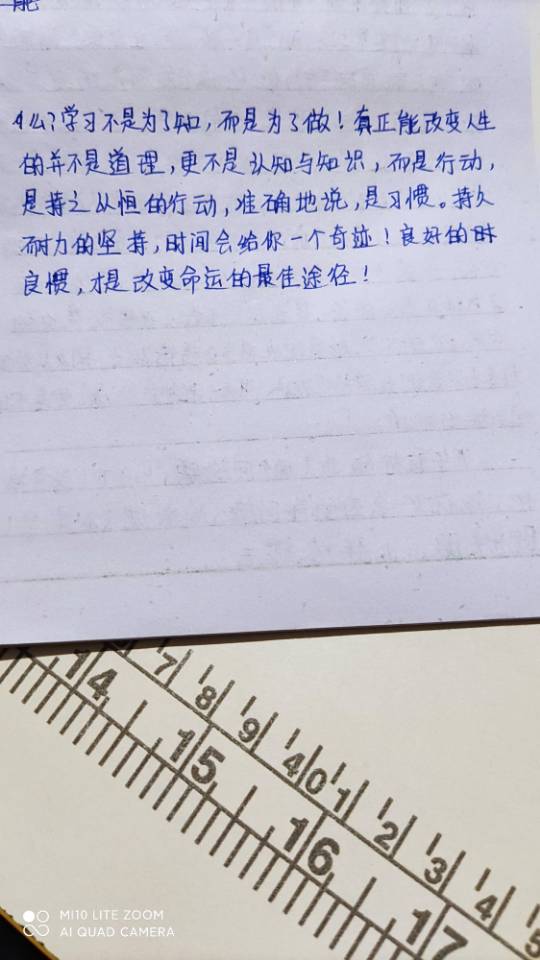 能
什么?学习不是为了知,而是为了做!真正能改变人生
的并不是道理,更不是认知与知识,而是行动,
是持之以恒的行动,准确地说,是习惯。持久
耐力的坚持,时间会给你一个奇迹!良好的
良惯,才是改变命运的最佳途径!
7 8 9 40 1 2 3 4 5
14 15 16 17
MI10 LITE ZOOM
AI QUAD CAMERA